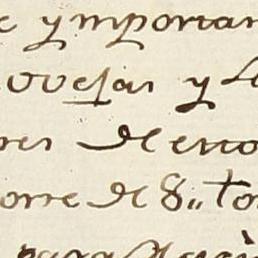 e ymportan
ovejas y L
res de esto
orre de S.n To
para